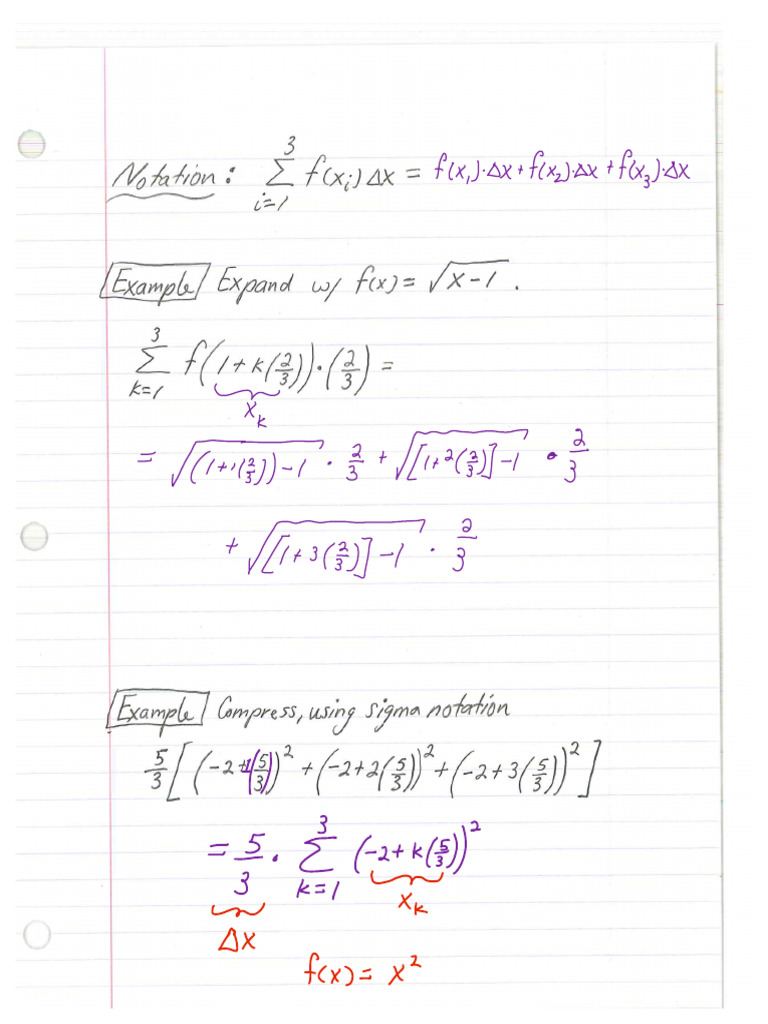 Notation: \sum_{i=1}^{3} f(x_i) Δx = f(x_1)·Δx + f(x_2)·Δx + f(x_3)·Δx
Example Expand w/ f(x) = \sqrt{x-1}.
\sum_{k=1}^{3} f(1+k(\frac{2}{3}))·(\frac{2}{3}) =
x_k
= \sqrt{(1+1(\frac{2}{3}))-1} · \frac{2}{3} + \sqrt{[1+2(\frac{2}{3})]-1} · \frac{2}{3}
+ \sqrt{[1+3(\frac{2}{3})]-1} · \frac{2}{3}
Example Compress, using sigma notation
\frac{5}{3}[(-2+1(\frac{5}{3}))^2 + (-2+2(\frac{5}{3}))^2 + (-2+3(\frac{5}{3}))^2]
= \frac{5}{3} · \sum_{k=1}^{3} (-2+k(\frac{5}{3}))^2
Δx x_k
f(x) = x^2